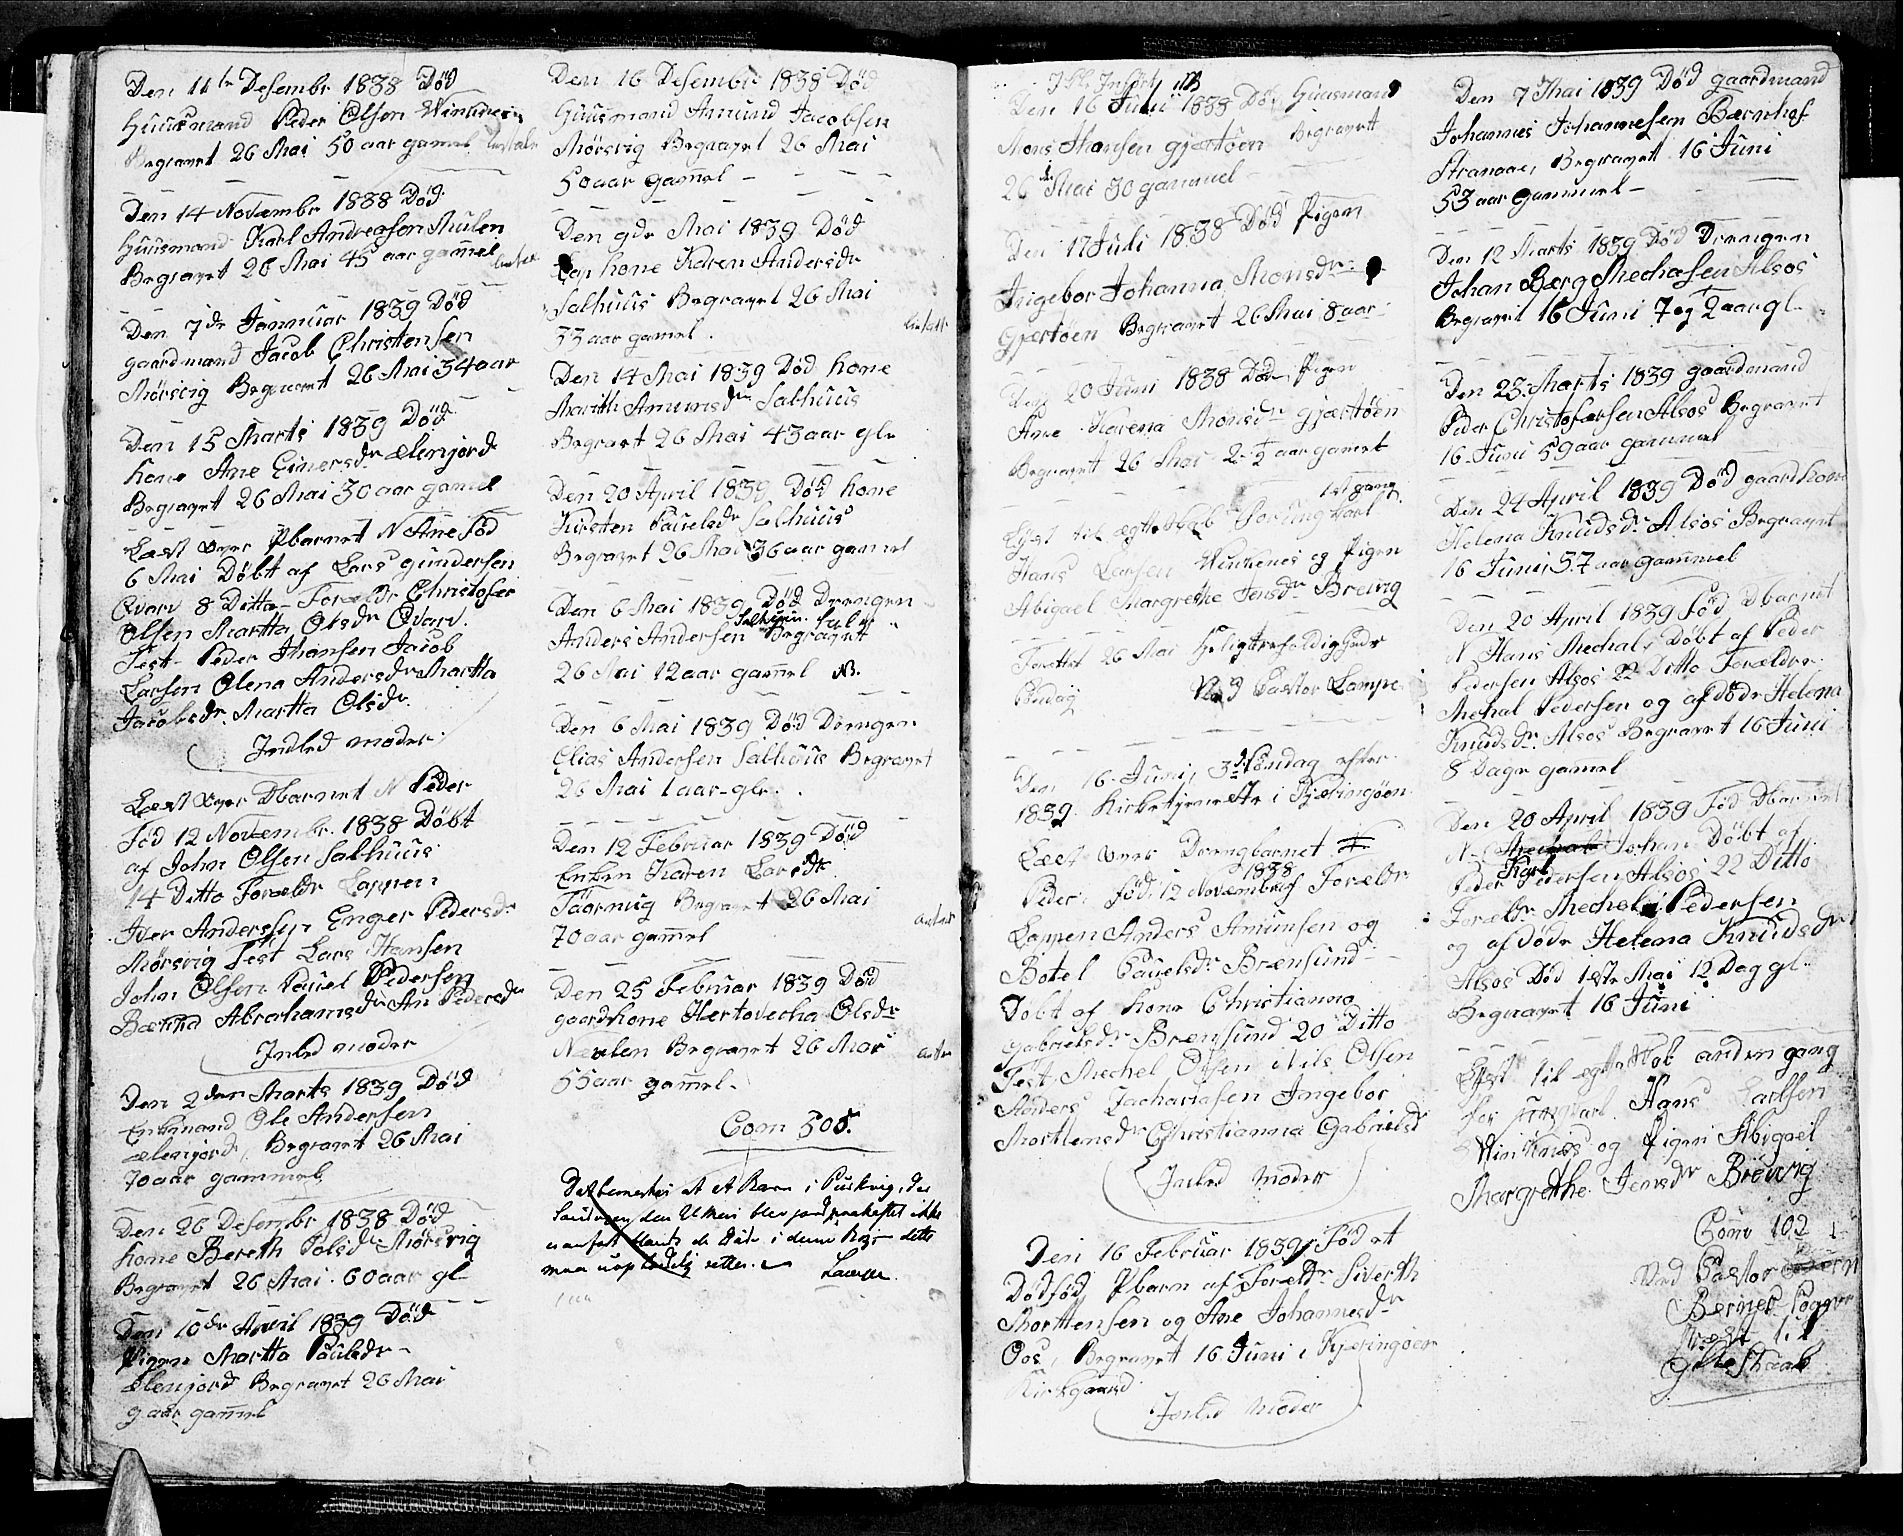 Den 11te Desembr 1838 Død
Huusmand Peder Olsen
Begravet 26 Mai 50 aar gamel
Den 14 Novæmbr 1838 Død
Huusmand Karl Andreasen Mulen
Begravet 26 Mai 45 aar gam̄el
Den 7de Jannuar 1839 Død
gaardmand Jacob Christensen
Mørsvig Begravet 26 Mai 34 aar
Den 15 Marts 1839 Død
kone Ane Einersdr Ælenjord
Begravet 26 Mai 30 aar gamel
Læst over Pbarnet N Ane Fød
6 Mai Døbt af Lars gundersen
Qvarv 8 Ditto Forældr Christofer
Olsen Martta Olsdr Qvarv.
Test Peder Jhansen Jacob
Larsen Olena Andersdr Martta
Jacobsdr Martta Olsdr.
Inled moder
Læst over Dbarnet N Peder
Fød 12 Novembr. 1838 Døbt
af John Olsen Salhuus
14 Ditto Forældr Lappen
Iver Andersen Enger Pedersdr
Mørsvig Test Lars Hansen
John Olsen Pauel Pedersen
Abrahamsdr An Pedersdr
Inled moder
Den 2den Marts 1839 Død
Enkmand Ole Andersen
Ælenjord, Begravet 26 Mai
70 aar gammel
Den 26 Desembr 1838 Død
kone Bereth Polsdr Mørsvig
Begravet 26 Mai 60 aar gl
Den 10de April 1839 Død
Pigen Martta Paulsdr
Ælenjord Begravet 26 Mai
9 aar gam̄el
Den 16 Desembr 1838 Død
Huusmand Amund Jacobsen
Mørsvig Begravet 26 Mai
50 aar gam̄el
Den 9de Mai 1839 Død
kone Karen Andersdr
Salhuus Begravet 26 Mai
33 aar gamel.
Den 14 Mai 1839 Død kone
Marith Amundsdr Salhuus
Begravet 26 Mai 43 aar gl
Den 20 April 1839 Død kone
Kirsten Pauelsdr Salhuus
Begravet 26 Mai 36 aar gamel
Den 6 Mai 1839 Død Drengen
Salhuus
Anders Andersen Begravet
26 Mai 12 aar gam̄el
Den 6 Mai 1839 Død Drengen
Elias Andersen Salhuus Begravet
26 Mai 1 aar gl.
Den 12 Februar 1839 Død
Enken Karen Larsdr
Begravet 26 Mai
70 aar gam̄el
Den 25 Februar 1839 Død
gaardkone Olsdr
Begravet 26 Mai
55 aar gamel.
Com 50
Det bemerkes at et Barn i
Laurse
Den 16 Juni 1838 Død Huusmand
Mons Hansen Gjærtøen Begravet
26 Mai 30 gammel
Den 17 Juli 1838 Død Pigen
Ingebor Johanna Monsdr
Gjærtøen Begravet 26 Mai 8 aar
Den 20 Juni 1838 Død Pigen
Ane Karena Monsdr Gjærtøen
Begravet 26 Mai 2 ½ aar gamel
1st gang
Lyst til ægteskab for ung karl
Hans Larsen og Pigen
Abigael Margrethe Jensdr Brevig
Forettet 26 Mai Heligtrefoldigheds
Søndag Ved Pastor Lampe
Den 16 Juni, 3d Søndag efter
1839 Kirketjeneste i Kjæringøen
Læst over Drengbarnet
1838
Peder, fød 12 Novæmbr Forældr
Lappen Anders Amunsen og
Botel Pauelsdr Brænsund
Døbt af kone Christianna
Gabrielsdr Brænsund 20 Ditto
Test Mechel Olsen Nils Olsen
Anders Zachariasen Ingebor
Morttensdr Christianna Gabrielsdr
Inled Moder
Den 16 Februar 1839 Fød et
Dødfød Pbarn af Forældr Siverth
Morttensen og Ane Johannesdr
Oos, Begravet 16 Juni i Kjæringøen
Kirkgaard
Inled Moder
Den 7 Mai 1839 Død gaardmand
Johannes Johannesen
Begravet 16 Juni
53 aar gammel
Den 12 Marts 1839 Død Drengen
Johan Bærg Mechalsen Alsos
Begravet 16 Juni 7 og ½ aar gl
Den 23 Marts 1839 gaardmand
Peder Christofærsen Alsos Begravet
16 Juni 59 aar gammel
Den 24 April 1839 Død gaardkone
Helena Knudsdr Alsos Begravet
16 Juni 37 aar gammel
Den 20 April 1839 Fød Dbarnet
N Hans Mechal, Døbt af Peder
Pedersen Alsos 22 Ditto Forældre
Mechal Pedersen og afdøde Helena
Knudsdr Alsos Begravet 16 Juni
8 Dage gamel
Den 20 April 1839 Fød Dbarnet
N Johan Døbt af
Karl
Peder Pedersen Alsos 22 Ditto
Forældr Mechel Pedersen
og afdøde Helena Knudsdr
Alsos Død 1ste Mai 12 Dag gl
Begravet 16 Juni
Lyst til ægteskab anden gang
for ungkarl Hans Larsen
og Pigen Abigael
Margrethe Jensdr Brevig
Com 102
Ved Pastor